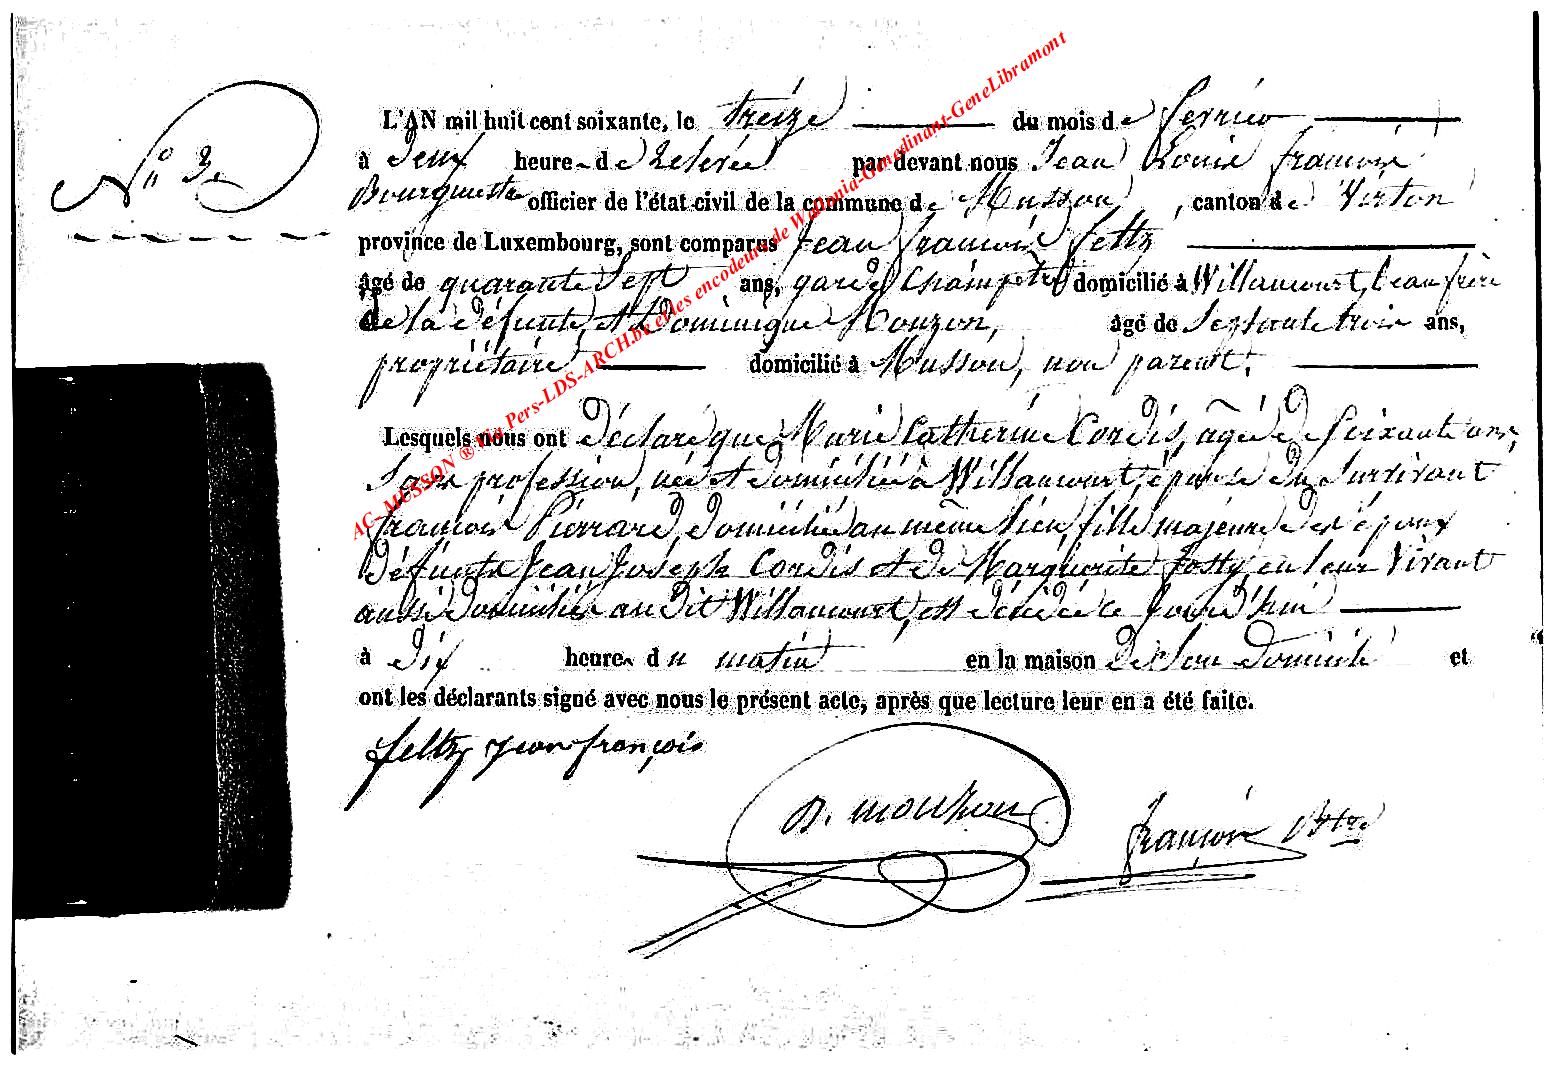 N° 3.
L'AN mil huit cent soixante, le treize du mois de fevrier
à Deux heures de relevée par devant nous Jean Louis françois
officier de l'état civil de la commune de Musson, canton de Virton
province de Luxembourg, sont comparus Jean françois feltz
âgé de quarante Sept ans, garde Champêtre domicilié à Willancourt, beau frère
de la défunte, et Dominique Mouzon, âgé de Septante trois ans,
propriétaire domicilié à Musson, non parent.
Lesquels nous ont Déclaré que Marie Catherine Cordis, âgée de Soixante ans,
Sans profession, née et domiciliée à Willancourt, épouse du Survivant
françois Pierrard, domicilié au même lieu, fille majeure des époux
défunts Jean Joseph Cordis et de Marguerite fosty, en leur Vivant
aussi domiciliés au dit Willancourt, est décédée ce jourd'hui
à Dix heures du matin en la maison de Son domicile et
ont les déclarants signé avec nous le présent acte, après que lecture leur en a été faite.
feltz jean françois
D. mouzon
françois
AC-MUSSON ® via Pers-LDS-ARCH.be et les encodeurs de Wallonia-Genedinant-GeneLibramont